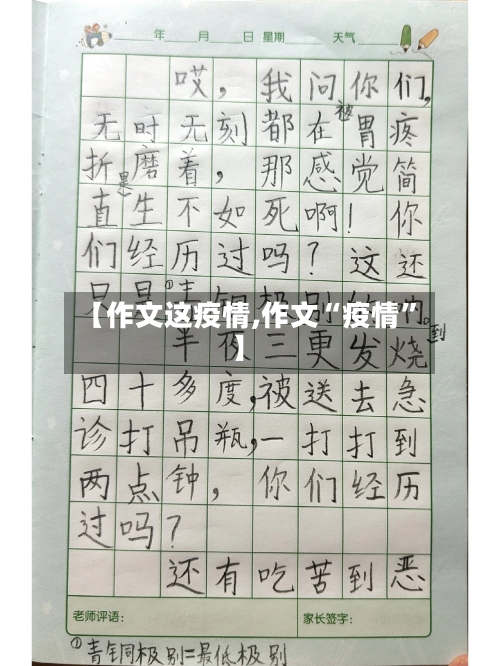 年 月 日 星期 天气
哎，我问你们，
无时无刻都在被胃疼
折磨着，那感觉简
直是生不如死啊！你
们经历过吗？这还
只是①青铜极别的内。
【作文这疫情,作文“疫情”
】
半夜三更发烧到
四十多度，被送去急
诊打吊瓶，一打打到
两点钟，你们经历
过吗？
还有吃苦到恶
老师评语：
家长签字：
①青铜极别=最低极别